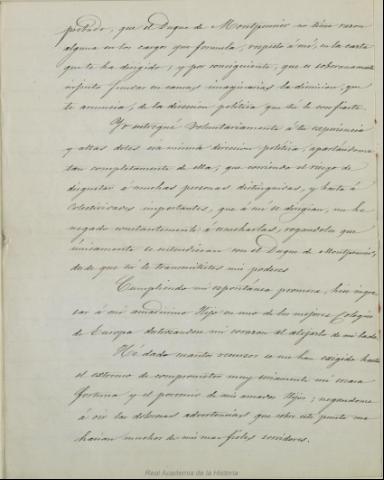 probado, que el Duque de Montpensier no tiene razon
alguna en los cargos que formula, respecto á mí, en la carta
que te ha dirigido; y por consiguiente, que es soberanamente
injusto fundar en causas imaginarias la dimision, que
te anuncia, de la direccion política que tú le confiaste.
Yo entregué voluntariamente á tu esperiencia
y altas dotes esa misma direccion política, apartandome
tan completamente de ella, que corriendo el riesgo de
disgustar á muchas personas distinguidas, y hasta á
Colectividades importantes, que á mí se dirigian, me he
negado constantemente á escucharlas, rogandoles que
únicamente se entendieran con el Duque de Montpensier,
desde que tú le transmitistes mis poderes
Cumpliendo mi espontánea promesa, hice ingre-
sar á mi amadísimo Hijo en uno de los mejores Colegios
de Europa destrozandose mi corazon al alejarlo de mi lado.
Hé dado cuantos recursos se me han exigido hasta
el extremo de comprometer muy seriamente mi escasa
fortuna y el porvenir de mis amados Hijos; negandome
á oir las dolorosas advertencias que sobre este punto me
hacian muchos de mis mas fieles servidores.
Real Academia de la Historia